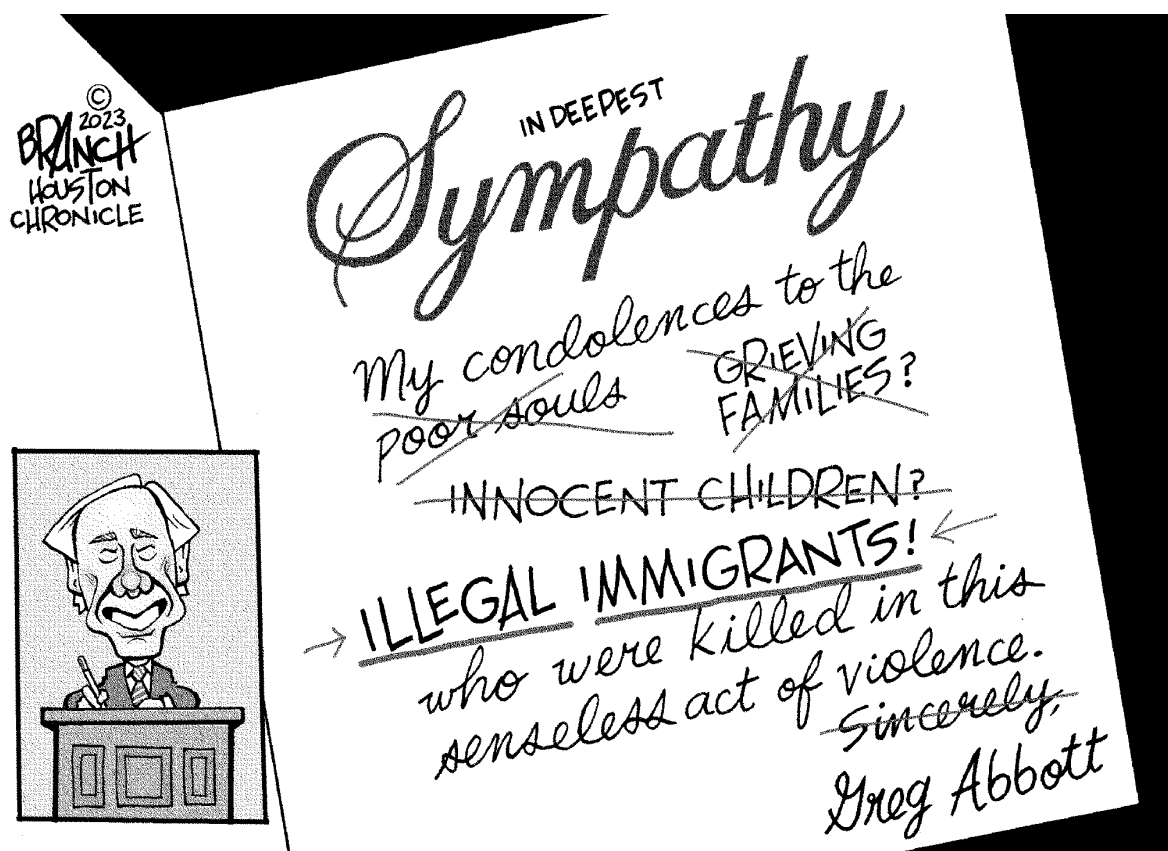 ©
2023
BRANCH
HOUSTON
CHRONICLE
IN DEEPEST
Sympathy
My condolences to the
poor souls
GRIEVING
FAMILIES?
INNOCENT CHILDREN?
ILLEGAL IMMIGRANTS!
who were killed in this
senseless act of violence.
Sincerely,
Greg Abbott